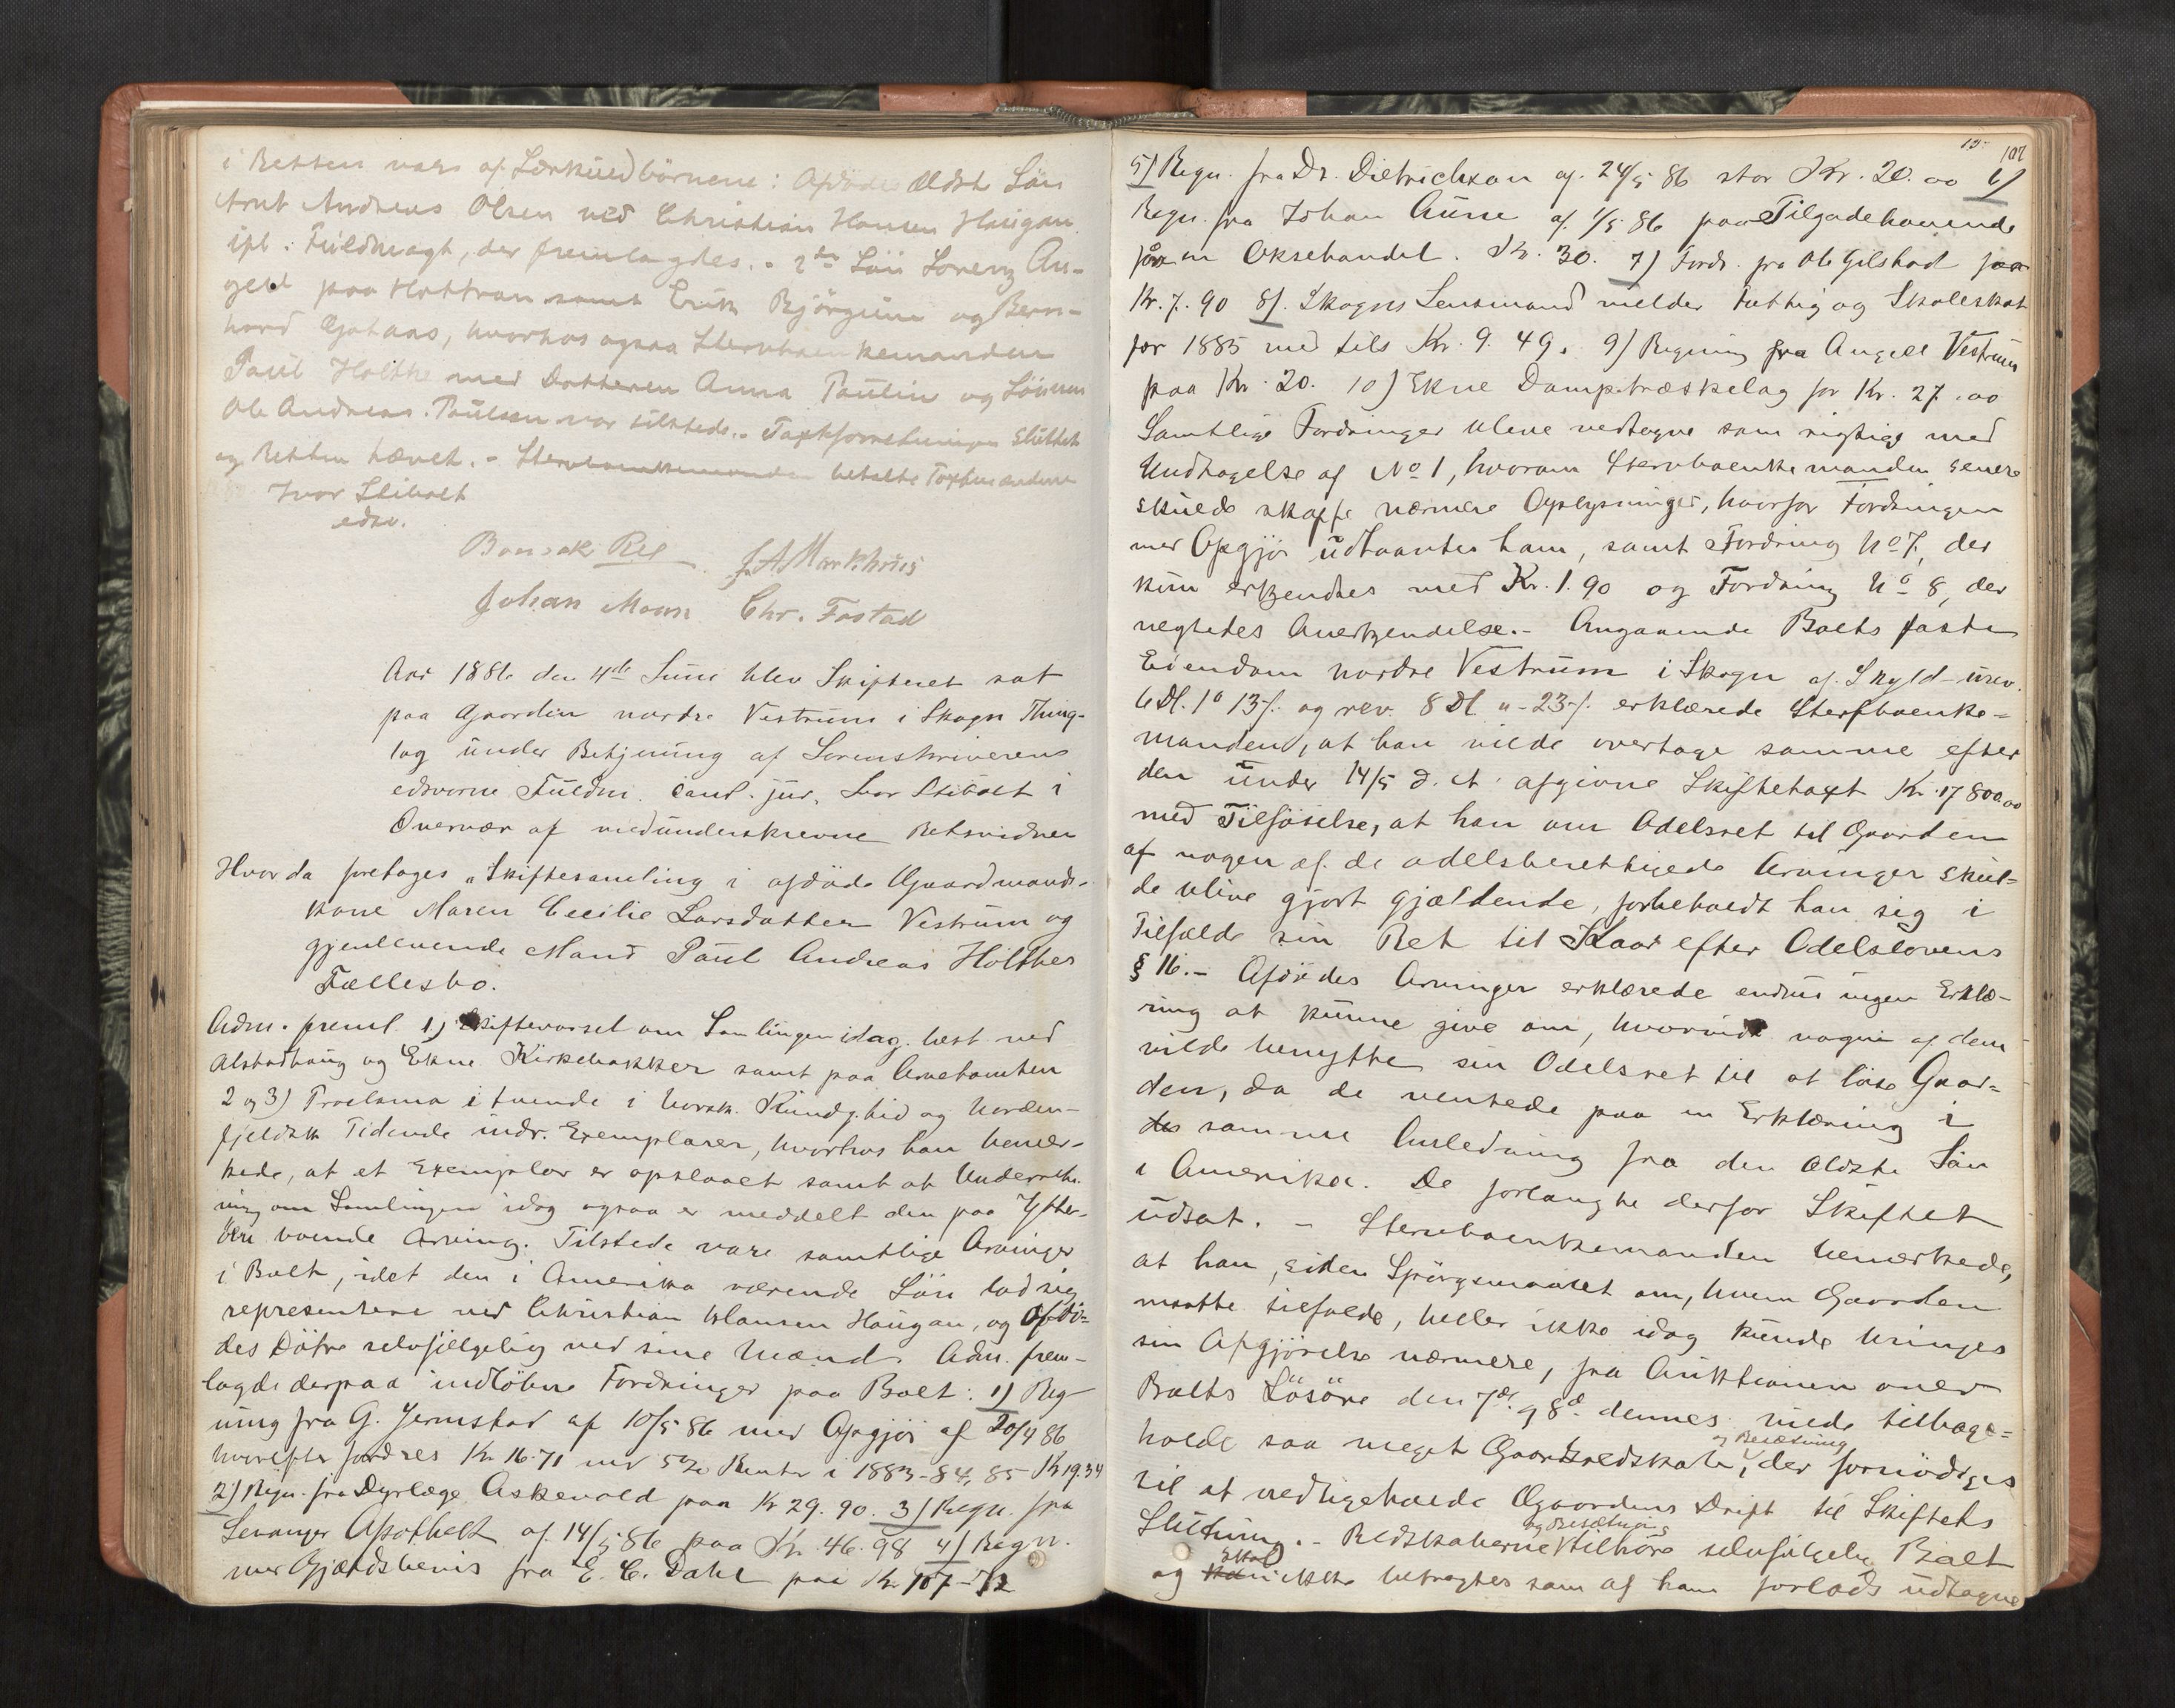 i Retten vare af Særkuldbörnene: Afdödes ældste Sön
Arnt Andreas Olsen ved Christian Hansen Haugan
ifl. Fuldmagt, der fremlagdes. - 2den Sön Lorenz An-
gell paa Holtran samt Erik Björguun og Bern-
hard Gotaas, hvorhos ogsaa Stervboenkemanden
Paul Holthe med Datteren Anna Pauline og Sönnen
Ole Andreas Paulsen var tilstede. - Taxtforretningen sluttet
og Retten hævet. - Stervboenkemanden betalte Taxtmændene
Ivar Stibolt
edsv.
Baarsak Rel J. A. Markhus
Johan Moan Chr. Fostad
Aar 1886 den 4de Juni blev Skifteret sat
paa Gaarden nordre Vestrum i Skogn Thing-
lag under Betjening af Sorenskriverens
edsvorne Fuldm. cand. jur. Ivar Stibolt i
Overvær af medunderskrevne Retsvidner
Hvor da foretoges "Skiftesamling i afdöde Gaardmands-
kone Maren Cecilie Larsdatter Vestrum og
gjenlevende Mand Paul Andreas Holthes
Fællesbo.
Adm. freml. 1) Skiftevarsel om Samlingen idag læst ved
Alstadhaug og Ekne Kirkebakker samt paa Arnetomten
2 og 3) Proclama i tvende i norsk Kundg.tid og Norden-
fjeldsk Tidende indr. Exemplarer, hvorhos han bemær-
kede, at et Exemplar er opslaaet samt at Underret-
ning om Samlingen idag ogsaa er meddelt den paa Ytter-
öen boende Arving. Tilstede vare samtlige Arvinger
i Boet, idet den i Amerika værende Sön lod sig
representere ved Christian Hansen Haugan, og Afdö-
des Dötre selvfölgelig ved sine Mænd. Adm. frem-
lagde derpaa indlöbne Fordringer paa Boet: 1) Reg-
ning fra G. Jermstad af 10/5 86 med Opgjör af 20/4 86
hvorefter fordres Kr. 16.71 med 5% Renter i 1883-84, 85 Kr 19.34
2) Regn. fra Dyrlæge Askevold paa Kr 29.90. 3) Regn. fra
Levanger Apothek af 14/5 86 paa Kr. 46.98 4) Regn.
med Gjældsbevis fra E. C. Dahl paa Kr. 107-12
107
5) Regn. fra Dr. Dietrichson af 24/5 86 stor Kr. 20.00 6)
Regn. fra Johan Aune af 1/5 86 paa Tilgodehavende
for en Oksehandel. Kr. 30. 7) Fordr. fra Ole Gilstad for
Kr. 7.90 8). Skogns Lensmand melder Fattig og Skoleskat
for 1885 med tils Kr. 9.49. 9) Regning fra Angell Vestrum
paa Kr. 20. 10) Ekne Damptræskelag for Kr. 27.00
Samtlige Fordringer bleve vedtagne som rigtige med
Undtagelse af No 1, hvorom Stervboenkemanden senere
skulde skaffe nærmere Oplysninger, hvorfor Fordringen
med Opgjör udlaantes ham, samt Fordring No 7, der
kun erkjendtes med Kr. 1.90 og Fordring No 8, der
negtedes Anerkjendelse. - Angaaende Boets faste
Eiendom nordre Vestrum i Skogn af Skyld urev.
6 Dl. 1 o 13 /. og rev. 8 Dl. " - 23 /. erklærede Stervboenke-
manden, at han vilde overtage samme efter
den under 14/5 d. A. afgivne Skiftetaxt Kr. 17800.00
med Tilföielse, at han om Odelsret til Gaarden
af nogen af de odelsberettigede Arvinger skul-
de blive gjort gjældende, forbeholdt han sig i
Tilfælde sin Ret til Kaar efter Odelslovens
§ 16. - Afdödes Arvinger erklærede endnu ingen Erklæ-
ring at kunne give om, hvorvidt nogen af dem
vilde benytte sin Odelsret til at löse Gaar-
den, da de ventede paa en Erklæring i
des samme Anledning fra den ældste Sön
i Amerika. De forlangte derfor Skiftet
udsat. - Stervboenkemanden bemærkede,
at han, siden Spörgsmaalet om, hvem Gaarden
maatte tilfalde, heller ikke idag kunde bringes
sin Afgjörelse nærmere, fra Auktionen over
Boets Lösöre den 7de og 8de dennes vilde tilbage-
holde saa meget Gaardsredskab og Besætning, der fornödiges
til at vedligeholde Gaardens Drift til Skiftets
Slutning. - Redskaberne og Besætning tilhöre selvfölgelig Boet
og kan skal ikke betragtes som af ham forlods udtagne